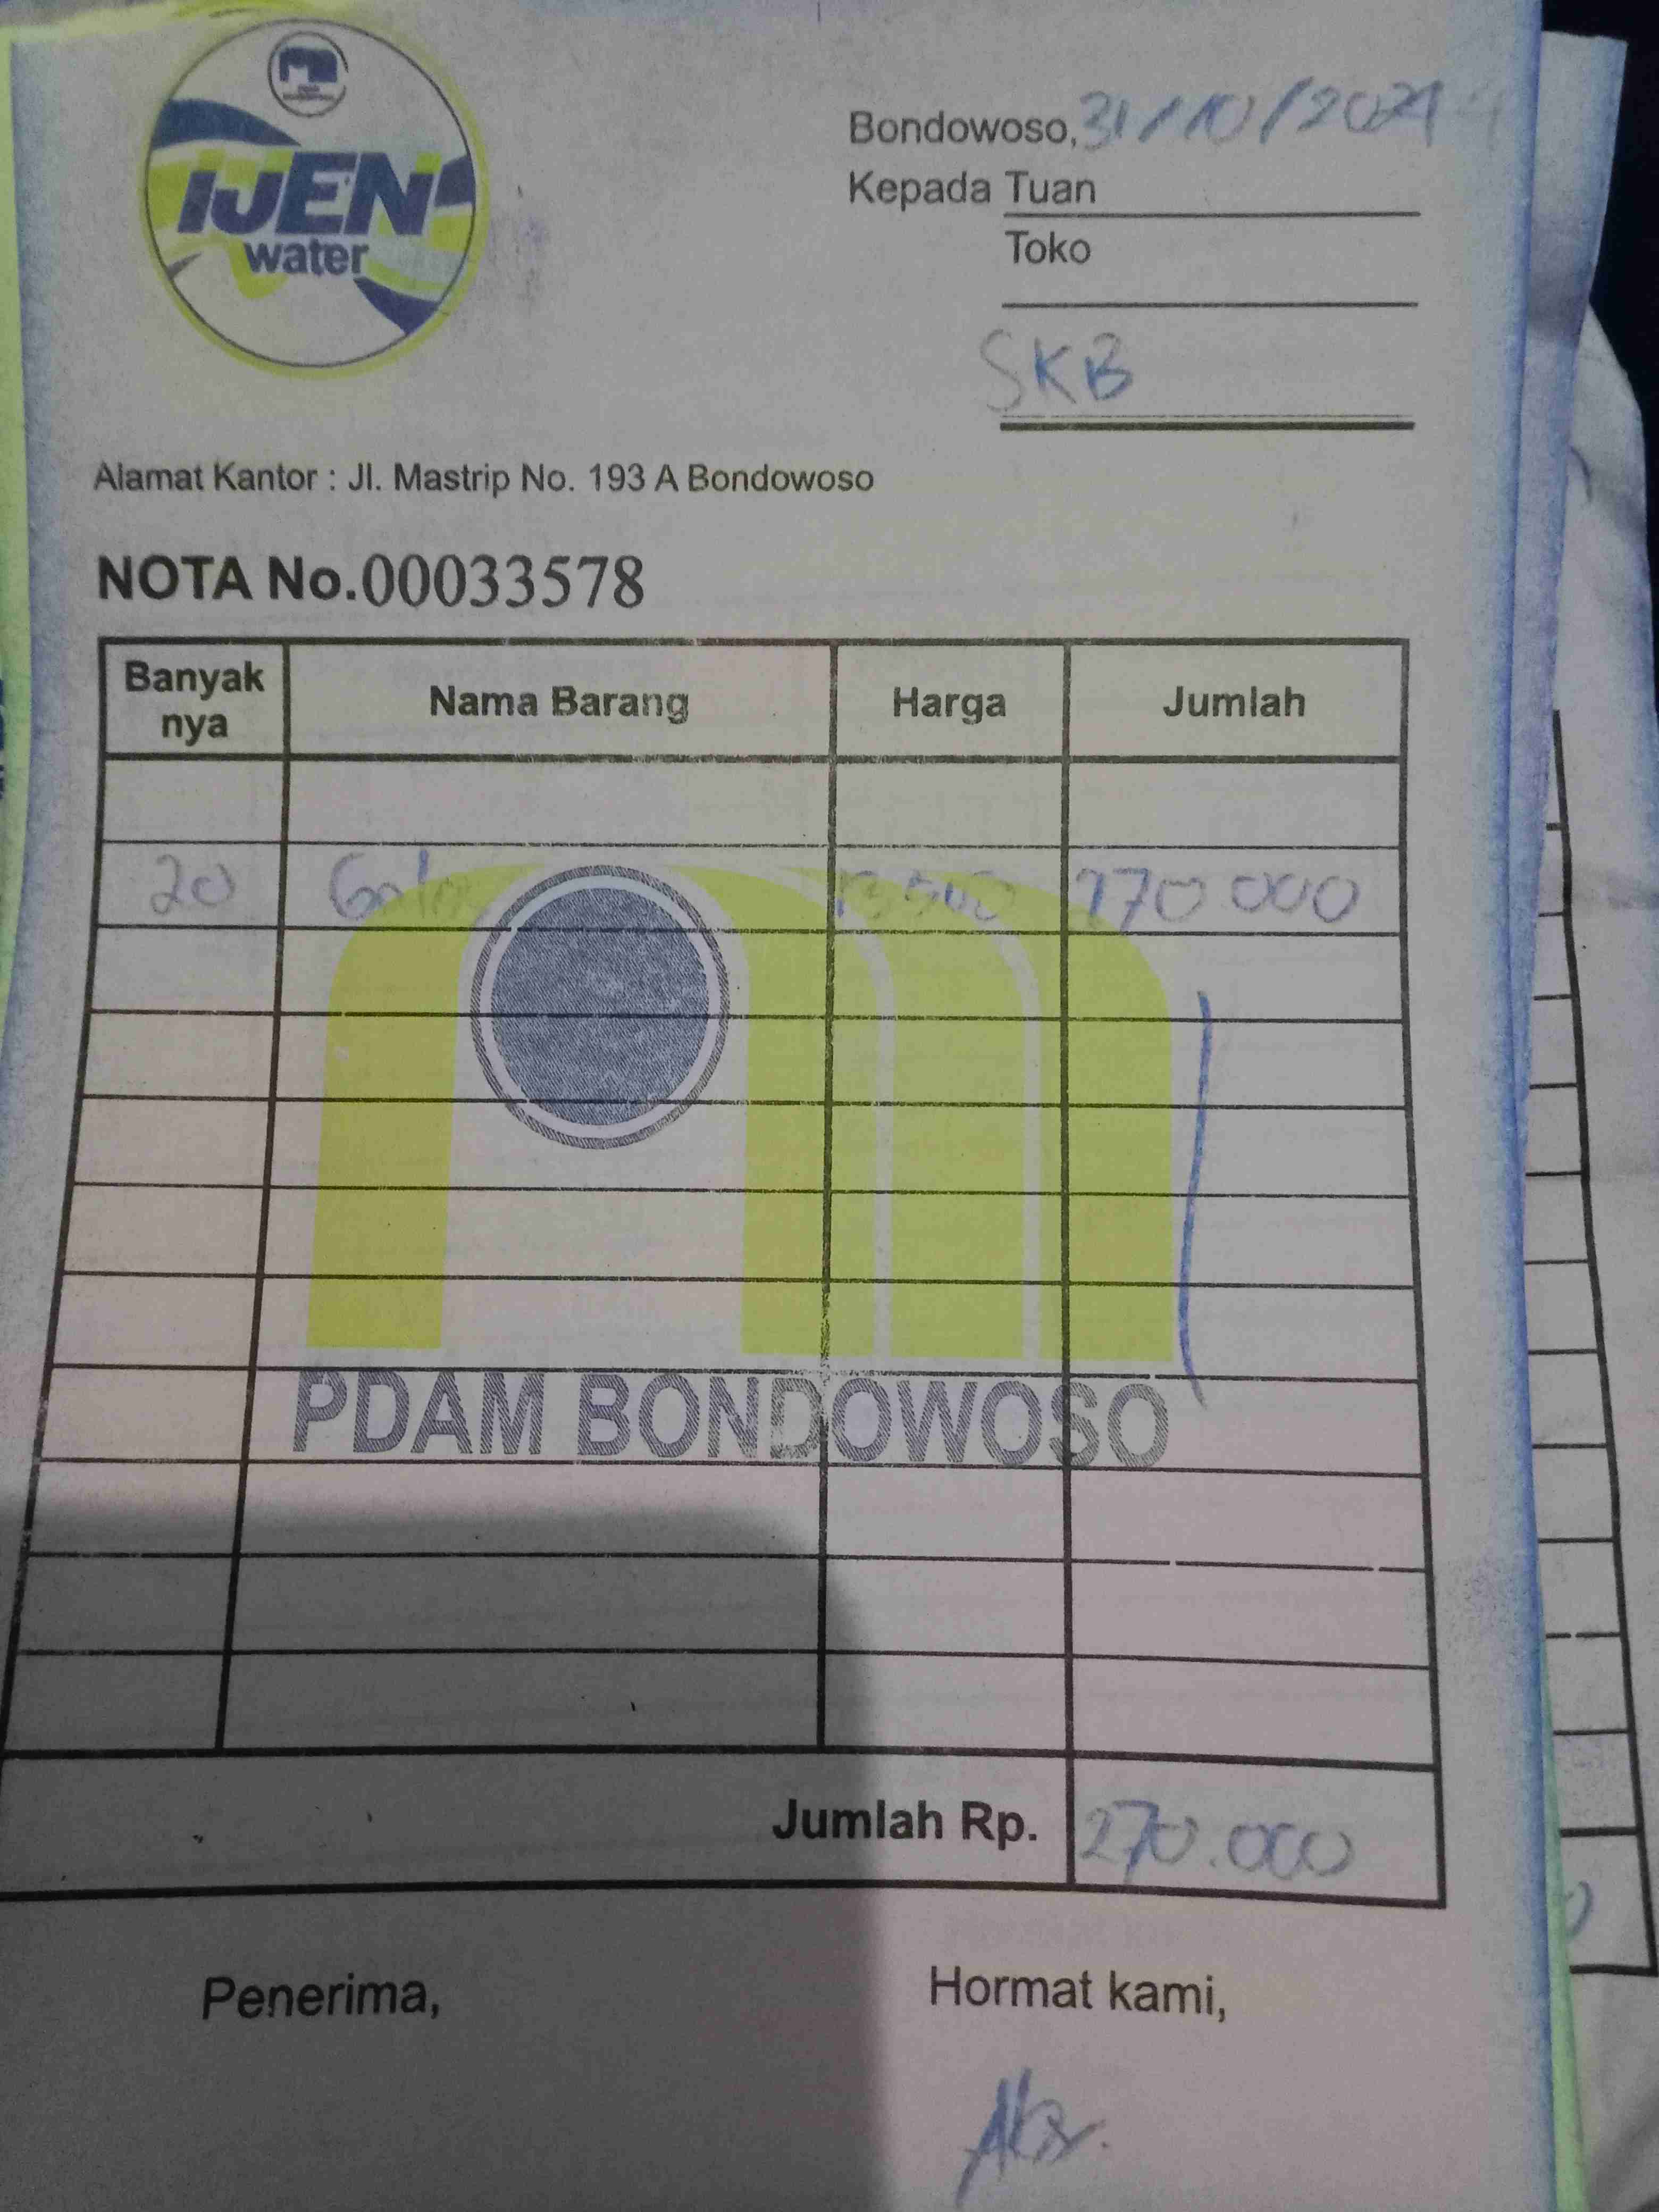 IJEN
water
Bondowoso, 31/10/2024
Kepada Tuan
Toko
SKB
Alamat Kantor : Jl. Mastrip No. 193 A Bondowoso
NOTA No.00033578
Banyak nya Nama Barang Harga Jumlah
20 Galon 13500 270 000
PDAM BONDOWOSO
Jumlah Rp. 270.000
Penerima, Hormat kami,